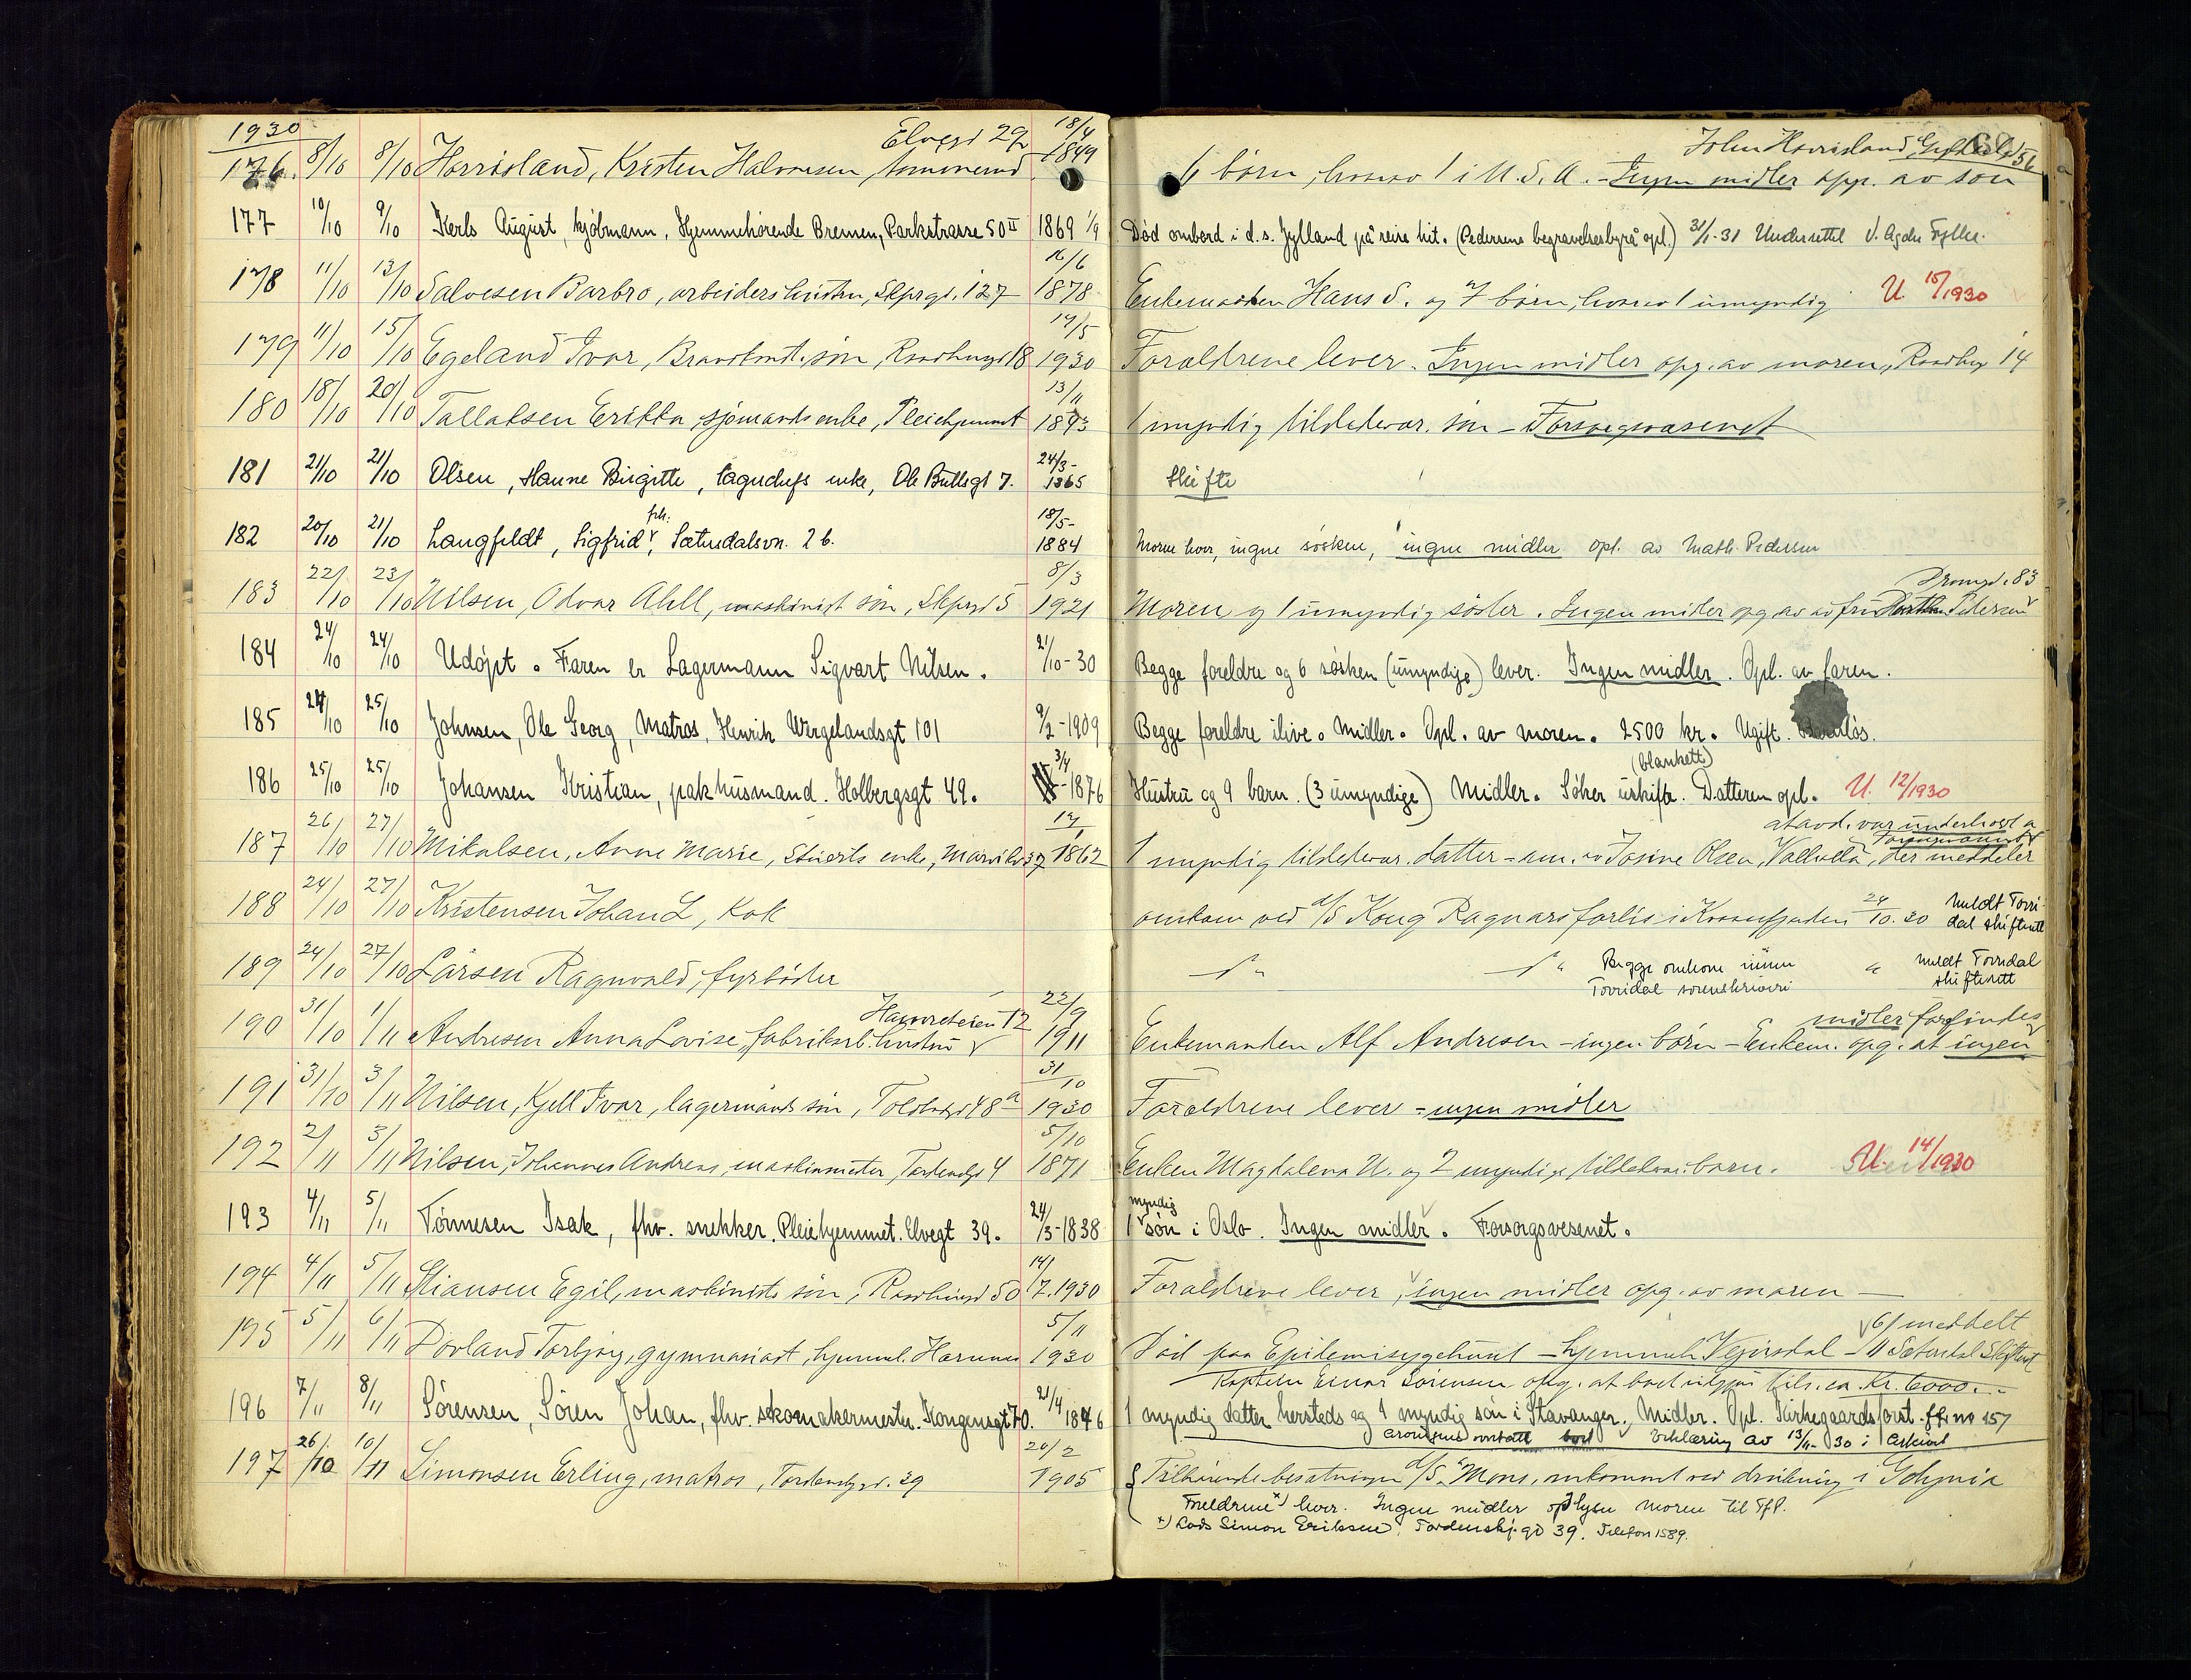 1930
176. 8/10 8/10 Horrisland, Kristen Halvorsen, Elvegt 29 18/4 1849 6 børn, hvorav 1 i U.S.A. - Ingen midler opg. av søn John Horrisland, 56
177 10/10 9/10 Kerls August, kjøbmann. Hjemmehørende Bremen, Parkstrasse 50 II 1869 1/9 Død ombord i d.s. Jylland på reise hit. (Pedersens begravelsesbyrå opl.) 31/1-31 Underrettet Agder Fylke.
178 11/10 13/10 Salvesen Barbro, arbeiders hustru, Skprgt. 127 16/6 1878 Enkemanden Hans S. og 7 børn, hvorav 1 umyndig U. 15/1930
179 11/10 15/10 Egeland Ivar, søn, Raadhusgt 18 14/5 1930 Forældrene lever. Ingen midler opg. av moren, Raadhusg 14
180 18/10 20/10 Tallaksen Erikka, sjømands enke, Pleiehjemmet 13/11 1893 1 myndig tilstedevær. søn - Forsorgsvæsenet
181 21/10 21/10 Olsen, Hanne Birgitte, enke, Ole Bullsgt 7. 24/3- 1865 Skifte
182 20/10 21/10 Langfeldt, Sigfrid frk., Sætersdalsvn. 26. 18/5- 1884 Moren lever, ingen søsken, ingen midler opl. av Math. Pedersen
183 22/10 23/10 Nilsen, Odvar Abell, maskinist søn, Skprgt 5 8/3 1921 Moren og 1 umyndig søster. Ingen midler opg av fru Pedersen Dronngt. 83
184 24/10 24/10 Udöpt. Faren er Lagermann Sigvart Nilsen. 21/10-30 Begge foreldre og 6 søsken (umyndige) lever. Ingen midler. Opl. av faren.
185 24/10 25/10 Johnsen, Ole Georg, Matros, Henrik Wergelandsgt 101 9/2-1909 Begge foreldre ilive. Midler. Opl. av moren. 2500 kr. Ugift. Barnløs.
186 25/10 25/10 Johansen Kristian, pakhusmand. Holbergsgt 49. 3/4 -1876 Hustru og 9 barn. (3 umyndige) Midler. Søker uskifte. (blankett) Datteren opl. U. 12/1930
187 26/10 27/10 Mikalsen, Anne Marie, Stuerts enke, 37 1862 1 myndig tilstedevær. datter - Josine Olsen, der meddeler at avd. var underholdt
188 24/10 27/10 Kristensen Johan L, Kok omkom ved d/s Kong Ragnars forlis i 24/10.30 meldt Torridal skifterett
189 24/10 27/10 Larsen Ragnvald, fyrbøder Begge omkom innen Torridal sorenskriveri meldt Torridal skifterett
190 31/10 1/11 Andresen Anna Lovise, fabrikarb. hustru Havreheien 12 22/9 1911 Enkemanden Alf Andresen - ingen børn - Enkem. opg. at ingen midler forefindes
191 31/10 3/11 Nilsen, Kjell Ivar, lagermands søn, Toldbodgt 48 a 31/10 1930 Forældrene lever - ingen midler
192 2/11 3/11 Nilsen, Johannes Andreas, maskinmester, Tordenskjgt 4 5/10 1871 Enken Magdalena N. og 2 myndige tilstedevær. barn. U. 14/1930
193 4/11 5/11 Tønnesen Isak, fhv. snekker. Pleiehjemmet. Elvegt 39. 24/3-1838 1 myndig søn i Oslo. Ingen midler. Forsorgsvesenet.
194 4/11 5/11 Stiansen Egil, maskinists søn, Raadhusgt 50 14/7.1930 Forældrene lever, ingen midler opg. av moren
195 5/11 6/11 Dovland Torbjørg, gymnasiast, hjemmeh. Hornnes 5/11 1930 Død paa Epidemisygehuset - hjemmeh - 6/11 meddelt Sætersdal Skifterett
Kaptein Einar Sørensen opg. at boet utgjør tils. ca. Kr. 6000.-
196 7/11 8/11 Sørensen, Søren Johan, fhv. skomakermester. Kongensgt 70. 21/4 1846 1 myndig datter hersteds og 1 myndig søn i Stavanger. Midler. Opl. Kirkegaardsforst. 157
Arvingene overtatt boet Erklæring av 13/11-30 i Arkivet
197 26/10 10/11 Simonsen Erling, matros, Tordenskjgt. 39 20/2 1905 Tilhørende besætningen d/s "Mons", omkommet ved drukning i Gdynia
Foreldrene x) lever. Ingen midler oplyser moren til Tlf.
x) Lods Simon Eriksen, Tordenskj.gt 39. Telefon 1589.